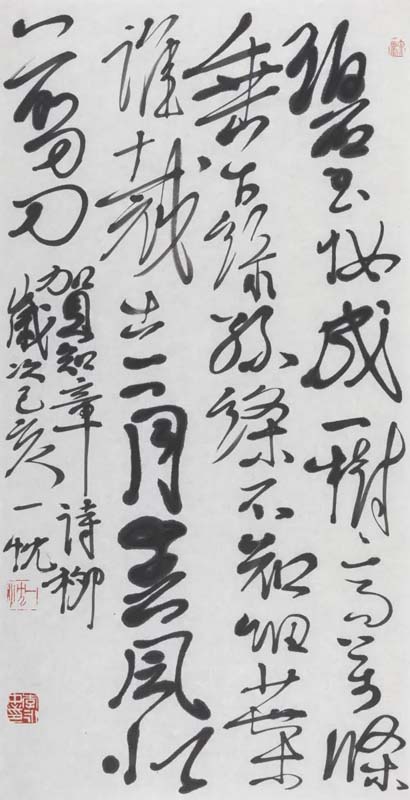 碧玉妝成一樹高萬條
垂下綠絲縧不知細葉
誰裁出二月春風似
翦刀
賀知章詩柳
歲次己亥一忱